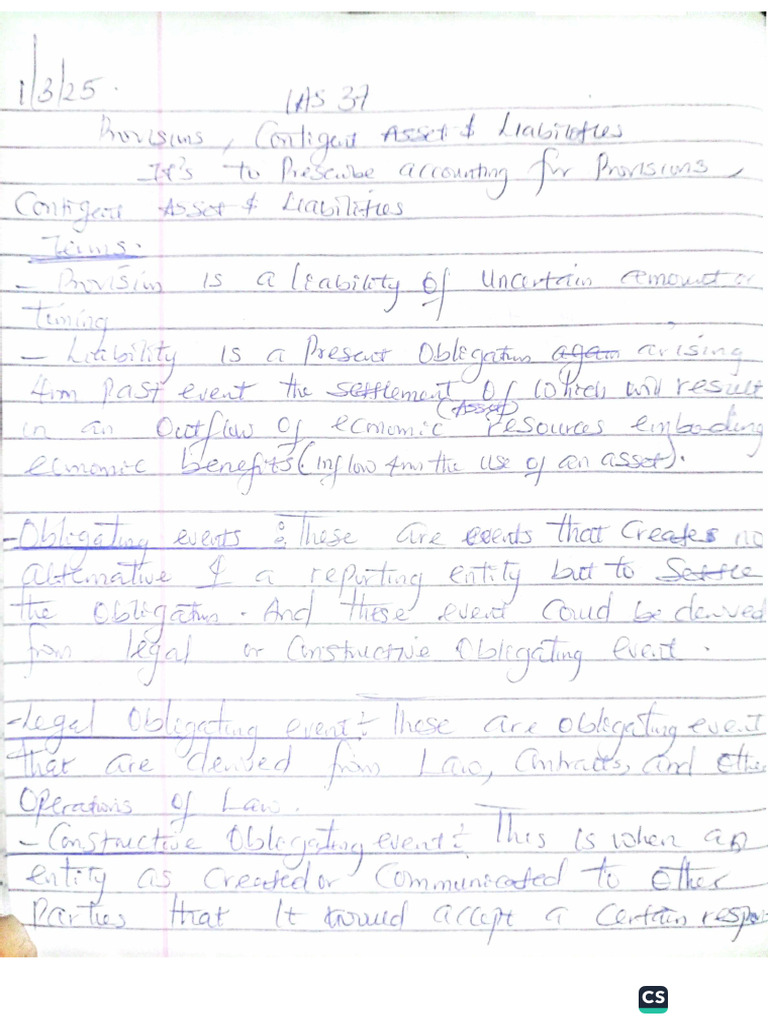 1/3/25.
IAS 37
Provisions, Contigent Asset & Liabilities
It's to Prescribe accounting for Provisions,
Contigent Asset & Liabilities
Terms.
- Provision is a liability of uncertain amount or
timing
- Liability is a Present Obligation again arising
4rm past event the settlement of which will result
in an Outflow of economic (Asset) resources embodding
economic benefits (inflow 4rm the use of an asset).
- Obligating events : These are events that creates no
alternative & a reporting entity but to Settle
the Obligation. And these event could be derived
from legal or Constructive Obligating event.
- Legal Obligating event : These are obligating event
that are derived from Law, Contracts, and Other
Operations of Law.
- Constructive Obligating event : This is when an
entity as created or Communicated to other
Parties that It would accept a certain respon
CS